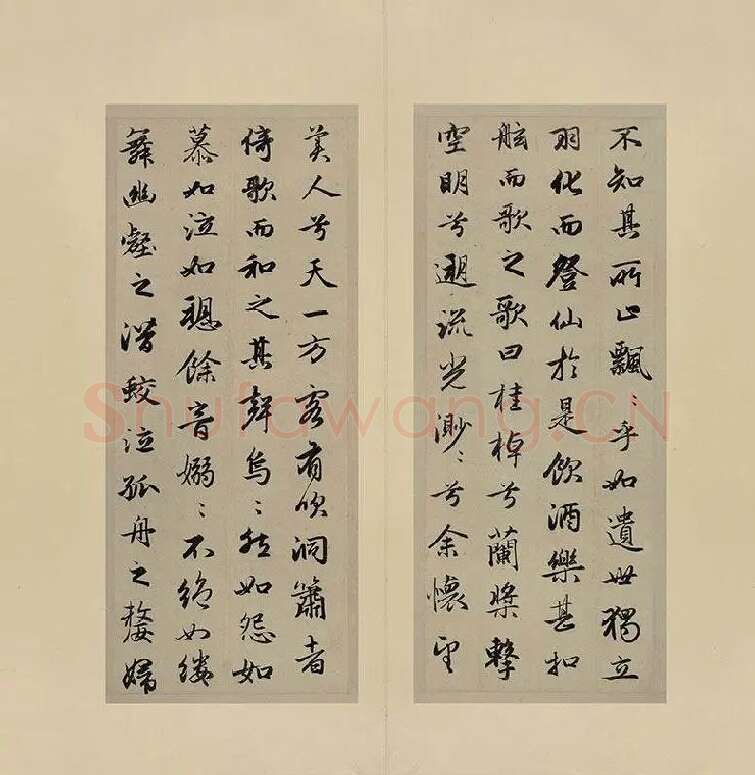 不知其所止飄々乎如遺世獨立
羽化而登仙於是飲酒樂甚扣
舷而歌之歌曰桂棹兮蘭槳擊
空明兮遡流光渺々兮余懷望
美人兮天一方客有吹洞簫者
倚歌而和之其聲烏々然如怨如
慕如泣如愬餘音嫋々不絕如縷
舞幽壑之潛蛟泣孤舟之嫠婦
Shufawang.CN